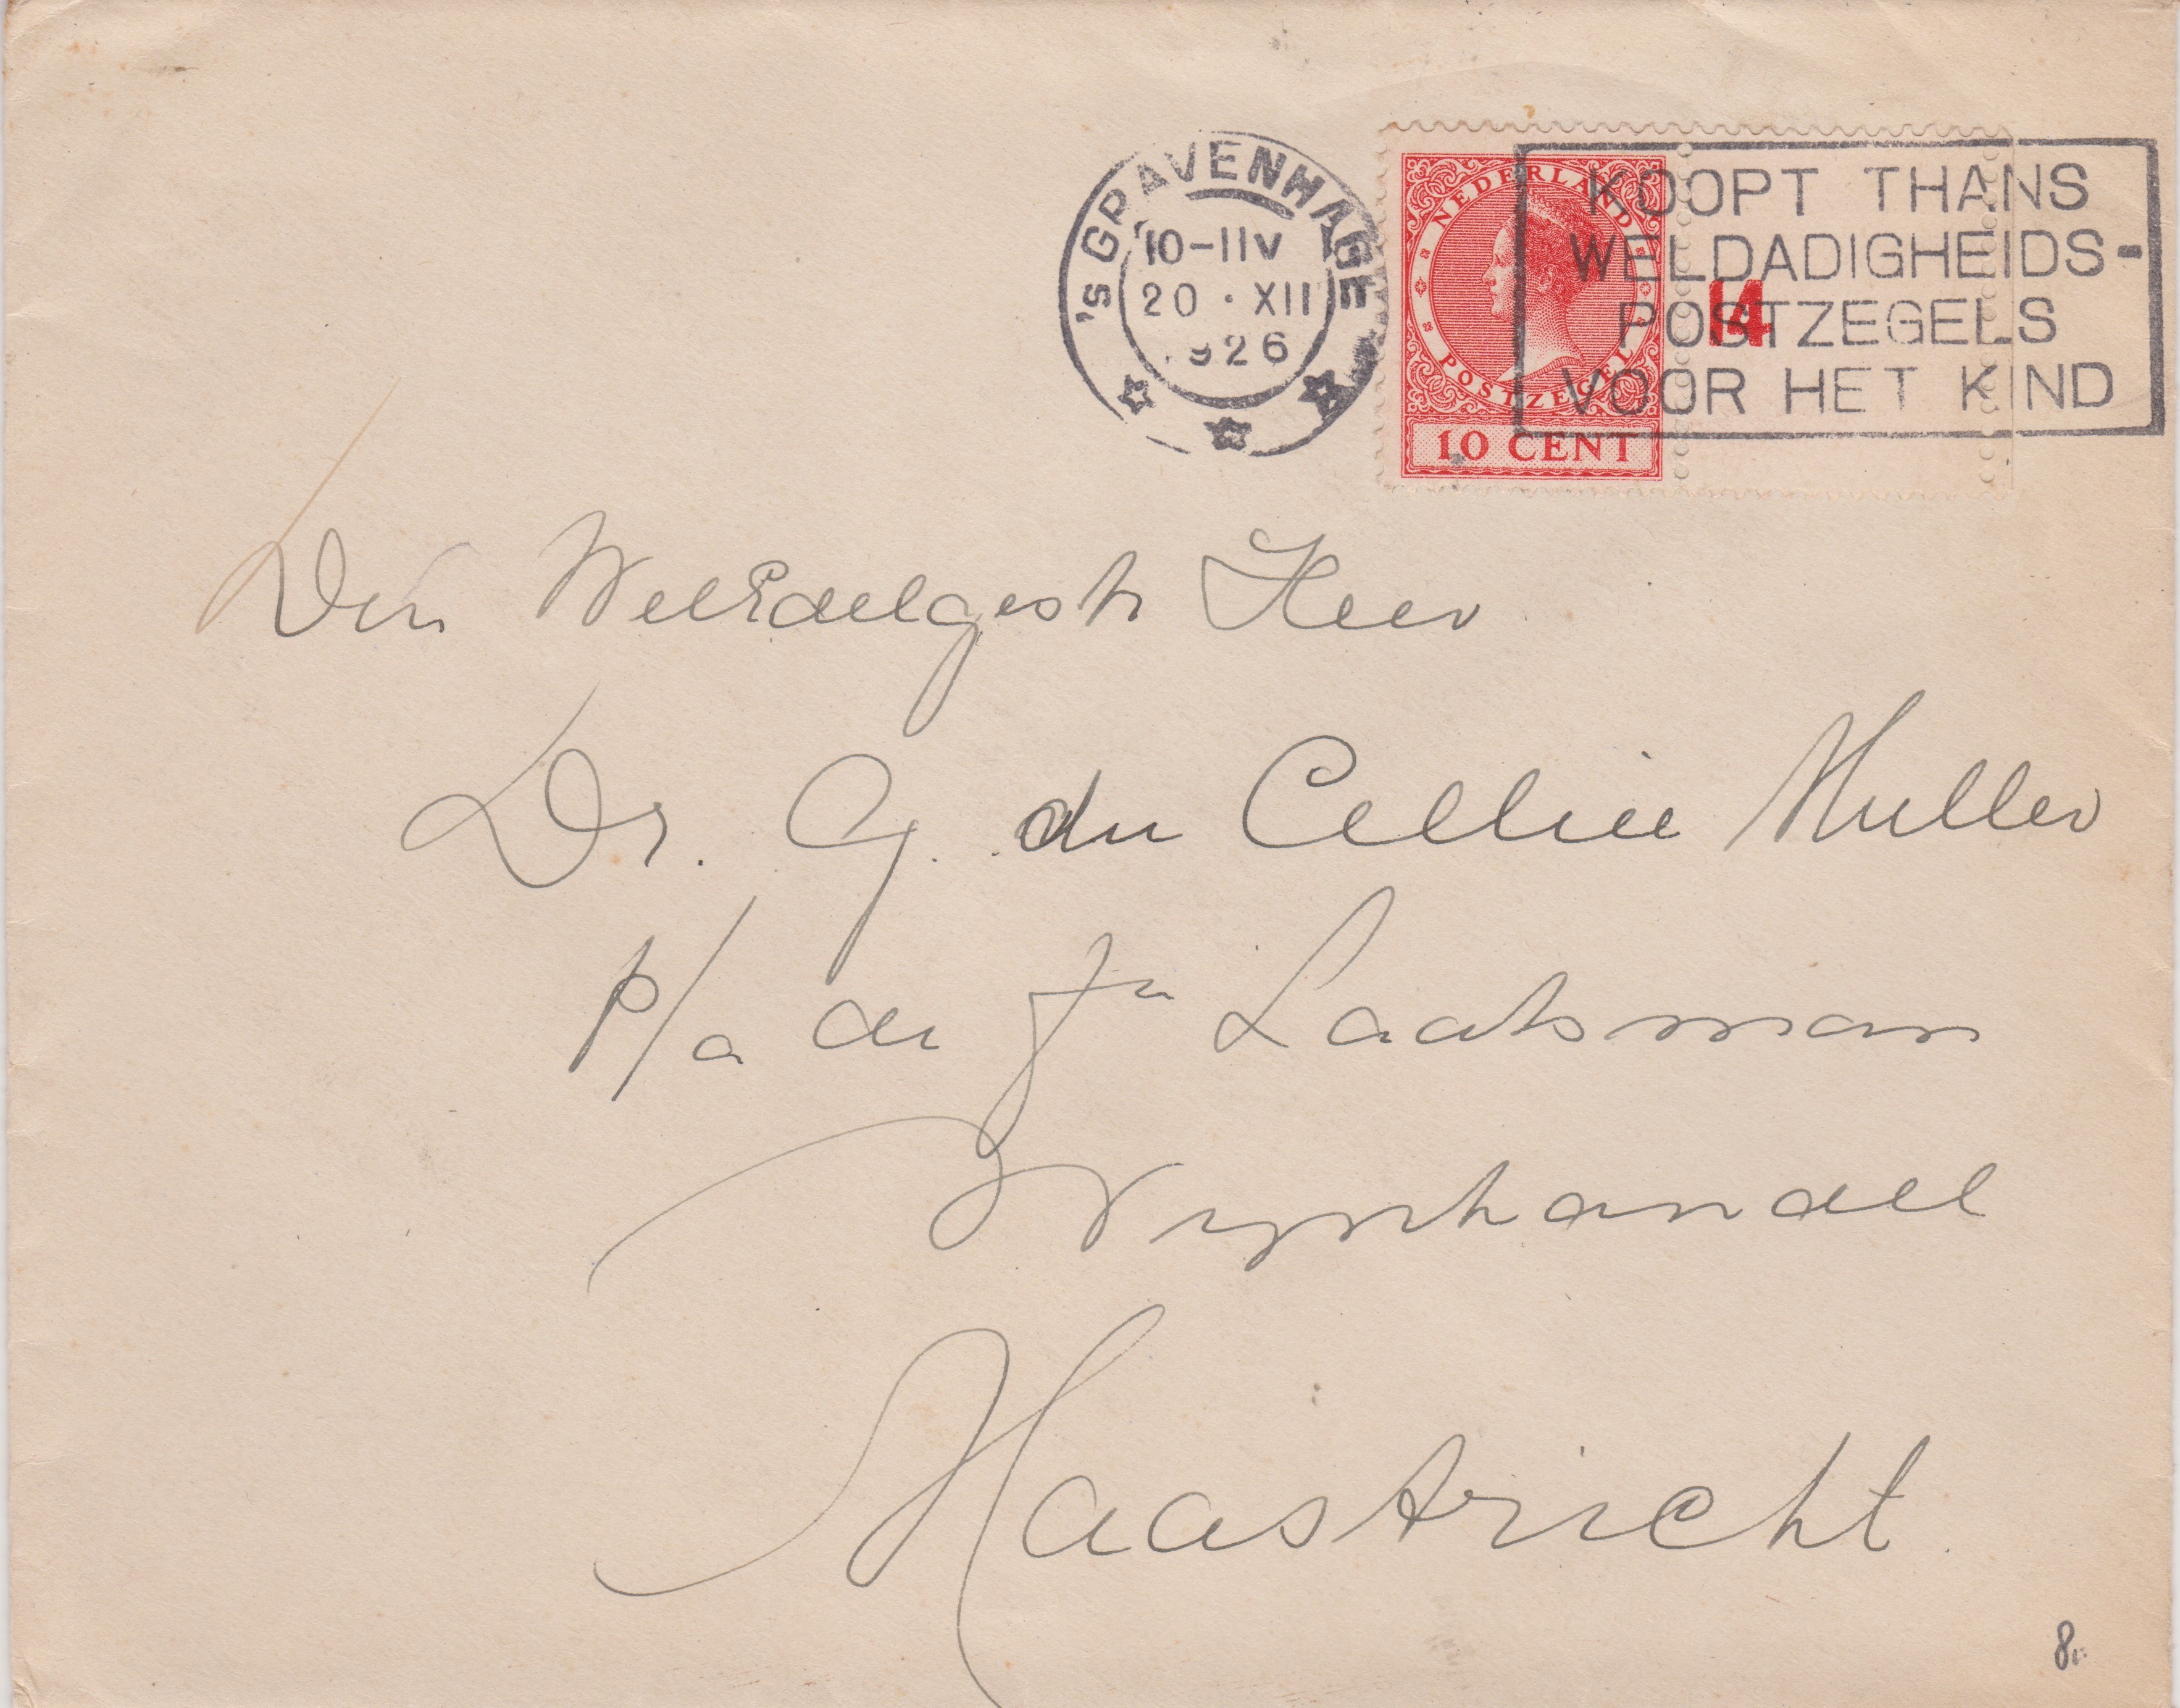 's GRAVENHAGE
10-11V
20 · XII
1926
NEDERLAND
POSTZEGEL
10 CENT
14
KOOPT THANS
WELDADIGHEIDS-
POSTZEGELS
VOOR HET KIND
Den WelEdelgestr Heer
Dr. G. du Celliée Muller
p/a de Fa Laatsman
Wijnhandel
Maastricht.